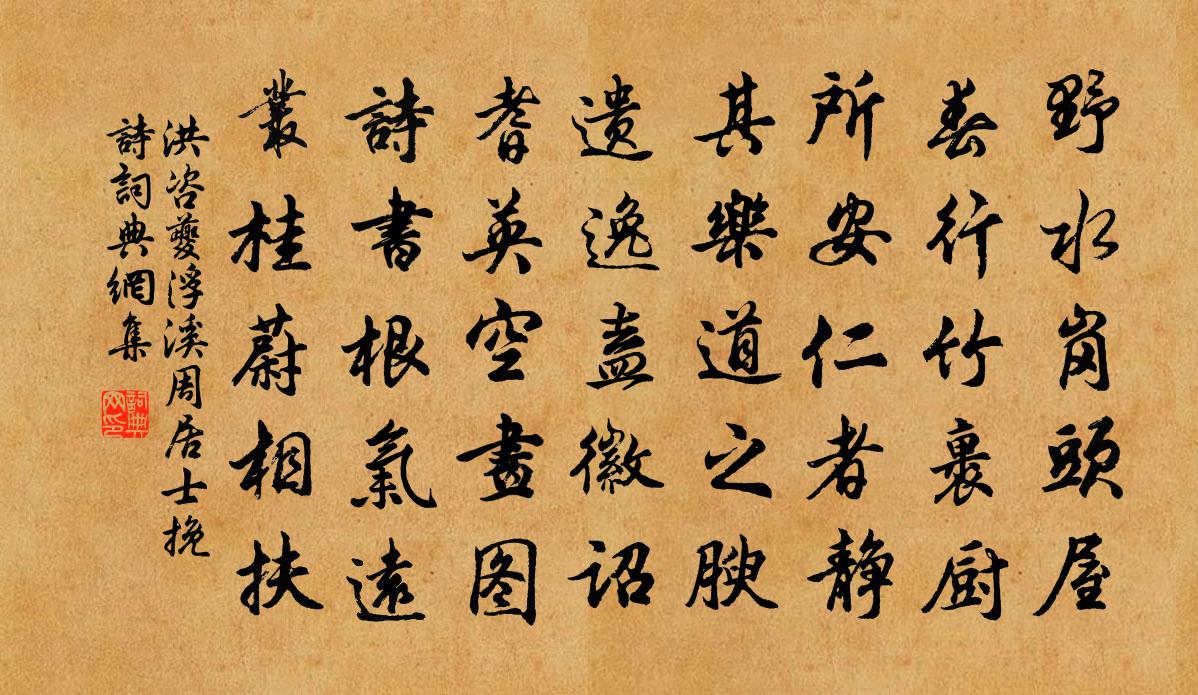 野水岗頭屋
春行竹裹厨
所安仁者静
其樂道之腴
遗逸盍徽诏
耆英空畫图
詩書根氣遠
叢桂蔚相扶
洪咨夔浮溪周居士挽
詩詞典網集
詞典網印